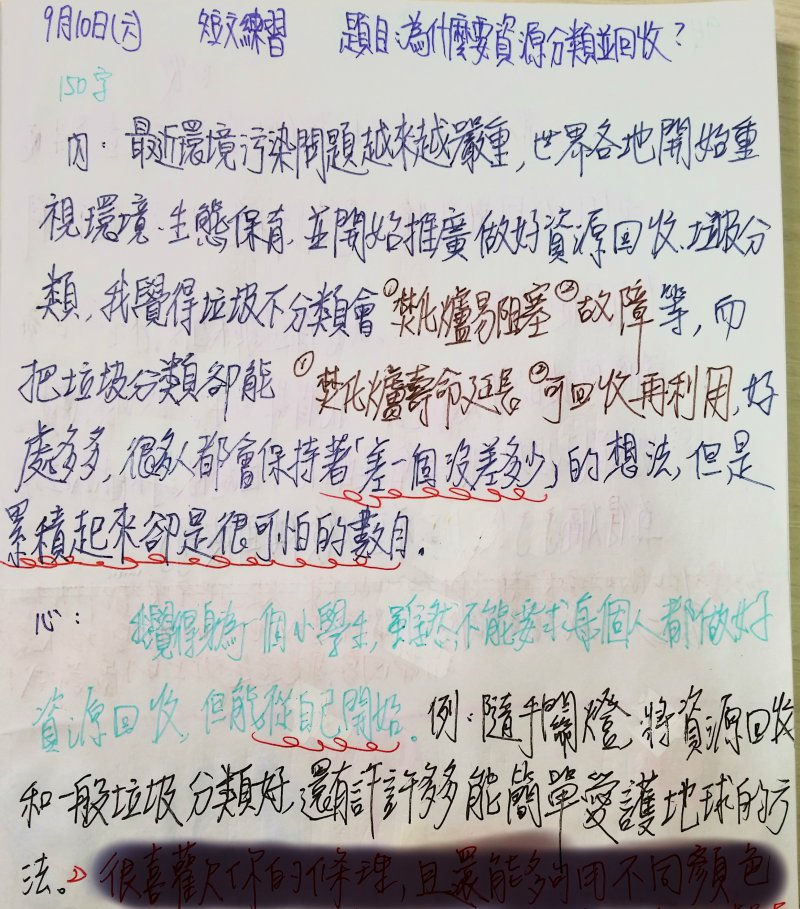 9月10日(六) 短文練習 題目:為什麼要資源分類並回收?
150字
內:最近環境污染問題越來越嚴重,世界各地開始重
視環境、生態保育,並開始推廣做好資源回收、垃圾分
類,我覺得垃圾不分類會①焚化爐易阻塞②故障等,而
把垃圾分類卻能①焚化爐壽命延長②可回收再利用,好
處多多,很多人都會保持著「差一個沒差多少」的想法,但是
累積起來卻是很可怕的數目。
心: 我覺得身為一個小學生,雖然不能要求每個人都做好
資源回收,但能從自己開始。例:隨手關燈、將資源回收
和一般垃圾分類好,還有許許多多能簡單愛護地球的方
法。很喜歡你的條理,且還能夠用不同顏色